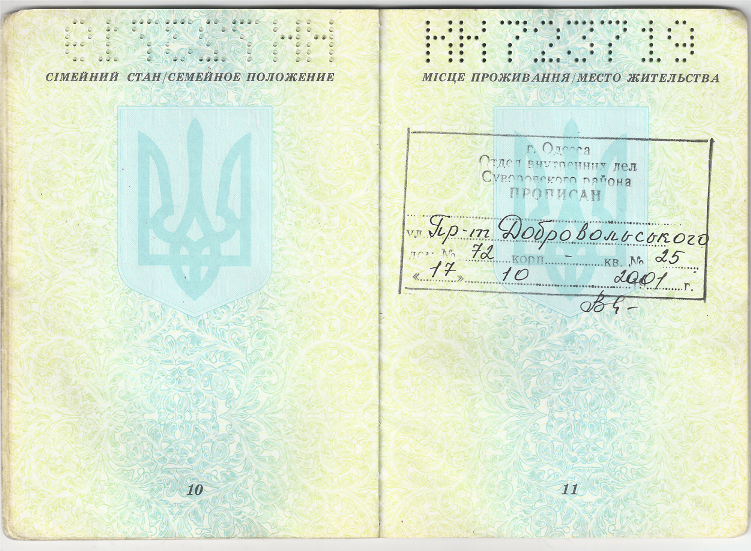 723719
СІМЕЙНИЙ СТАН/СЕМЕЙНОЕ ПОЛОЖЕНИЕ
10
МІСЦЕ ПРОЖИВАННЯ/МЕСТО ЖИТЕЛЬСТВА
г. Одесса
Отдел внутренних дел
Суворовского района
ПРОПИСАН
ул. Пр-т Добровольського
дом № 72 корп. - кв. № 25
«17» 10 2001 г.
11